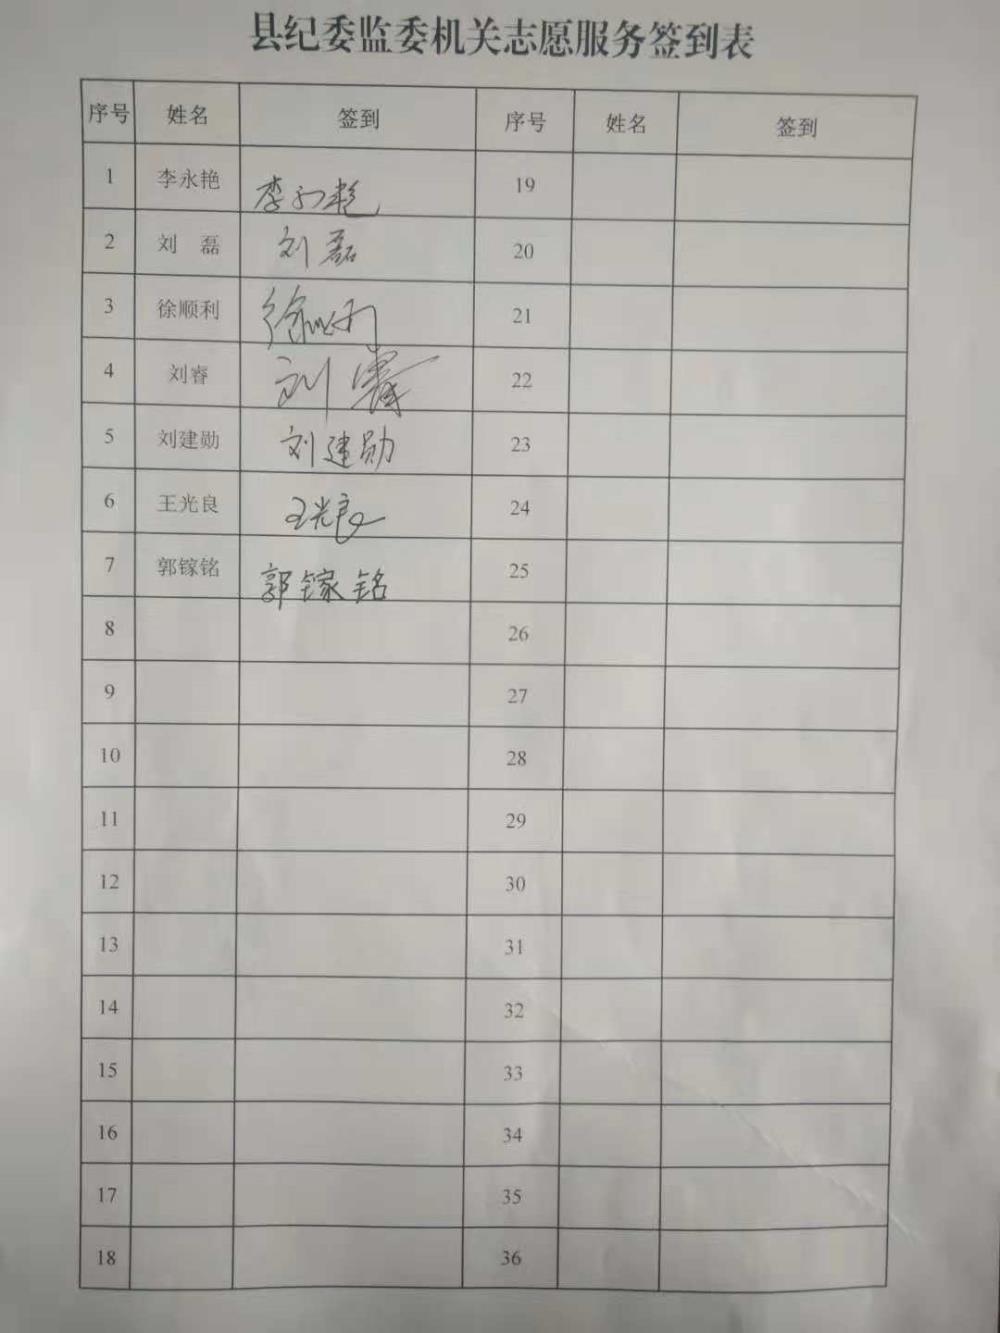 县纪委监委机关志愿服务签到表
序号 姓名 签到 序号 姓名 签到
1 李永艳 李永艳 19
2 刘 磊 刘磊 20
3 徐顺利 徐顺利 21
4 刘睿 刘睿 22
5 刘建勋 刘建勋 23
6 王光良 王光良 24
7 郭镓铭 郭镓铭 25
8 26
9 27
10 28
11 29
12 30
13 31
14 32
15 33
16 34
17 35
18 36